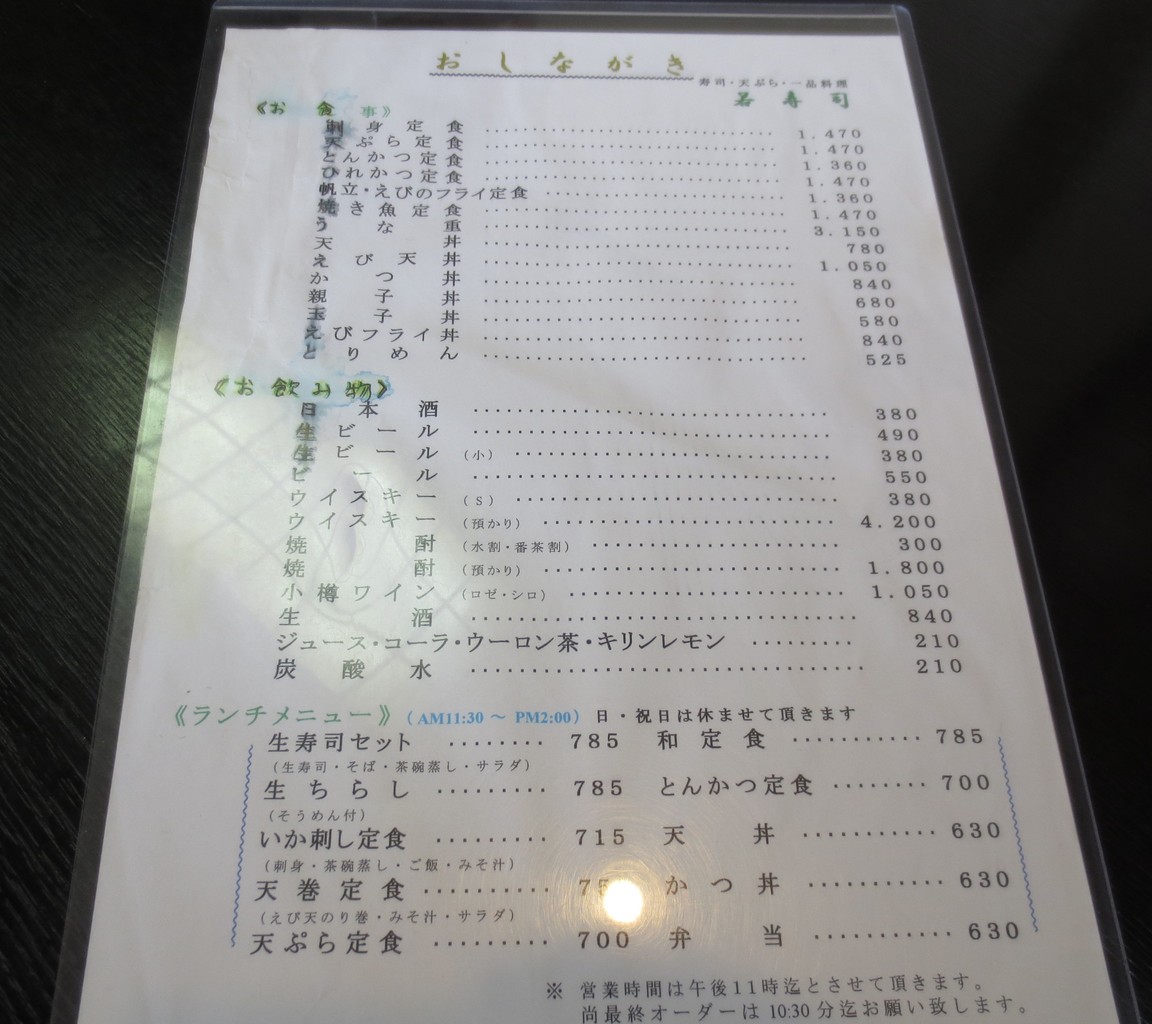 おしながき
寿司・天ぷら・一品料理
若寿司
《お食事》
刺身定食 1.470
天ぷら定食 1.470
とんかつ定食 1.360
ひれかつ定食 1.470
帆立・えびのフライ定食 1.360
焼き魚定食 1.470
うな重 3.150
天丼 780
えび天丼 1.050
かつ丼 840
親子丼 680
玉子丼 580
えびフライ丼 840
とりめん 525
《お飲み物》
日本酒 380
生ビール 490
生ビール (小) 380
ビール 550
ウイスキー (S) 380
ウイスキー (預かり) 4.200
焼酎 (水割・番茶割) 300
焼酎 (預かり) 1.800
小樽ワイン (ロゼ・シロ) 1.050
生酒 840
ジュース・コーラ・ウーロン茶・キリンレモン 210
炭酸水 210
《ランチメニュー》(AM11:30 〜 PM2:00) 日・祝日は休ませて頂きます
生寿司セット 785 和定食 785
(生寿司・そば・茶碗蒸し・サラダ)
生ちらし 785 とんかつ定食 700
(そうめん付)
いか刺し定食 715 天丼 630
(刺身・茶碗蒸し・ご飯・みそ汁)
天巻定食 かつ丼 630
(えび天のり巻・みそ汁・サラダ)
天ぷら定食 700 弁当 630
※ 営業時間は午後11時迄とさせて頂きます。
尚最終オーダーは10:30分迄お願い致します。